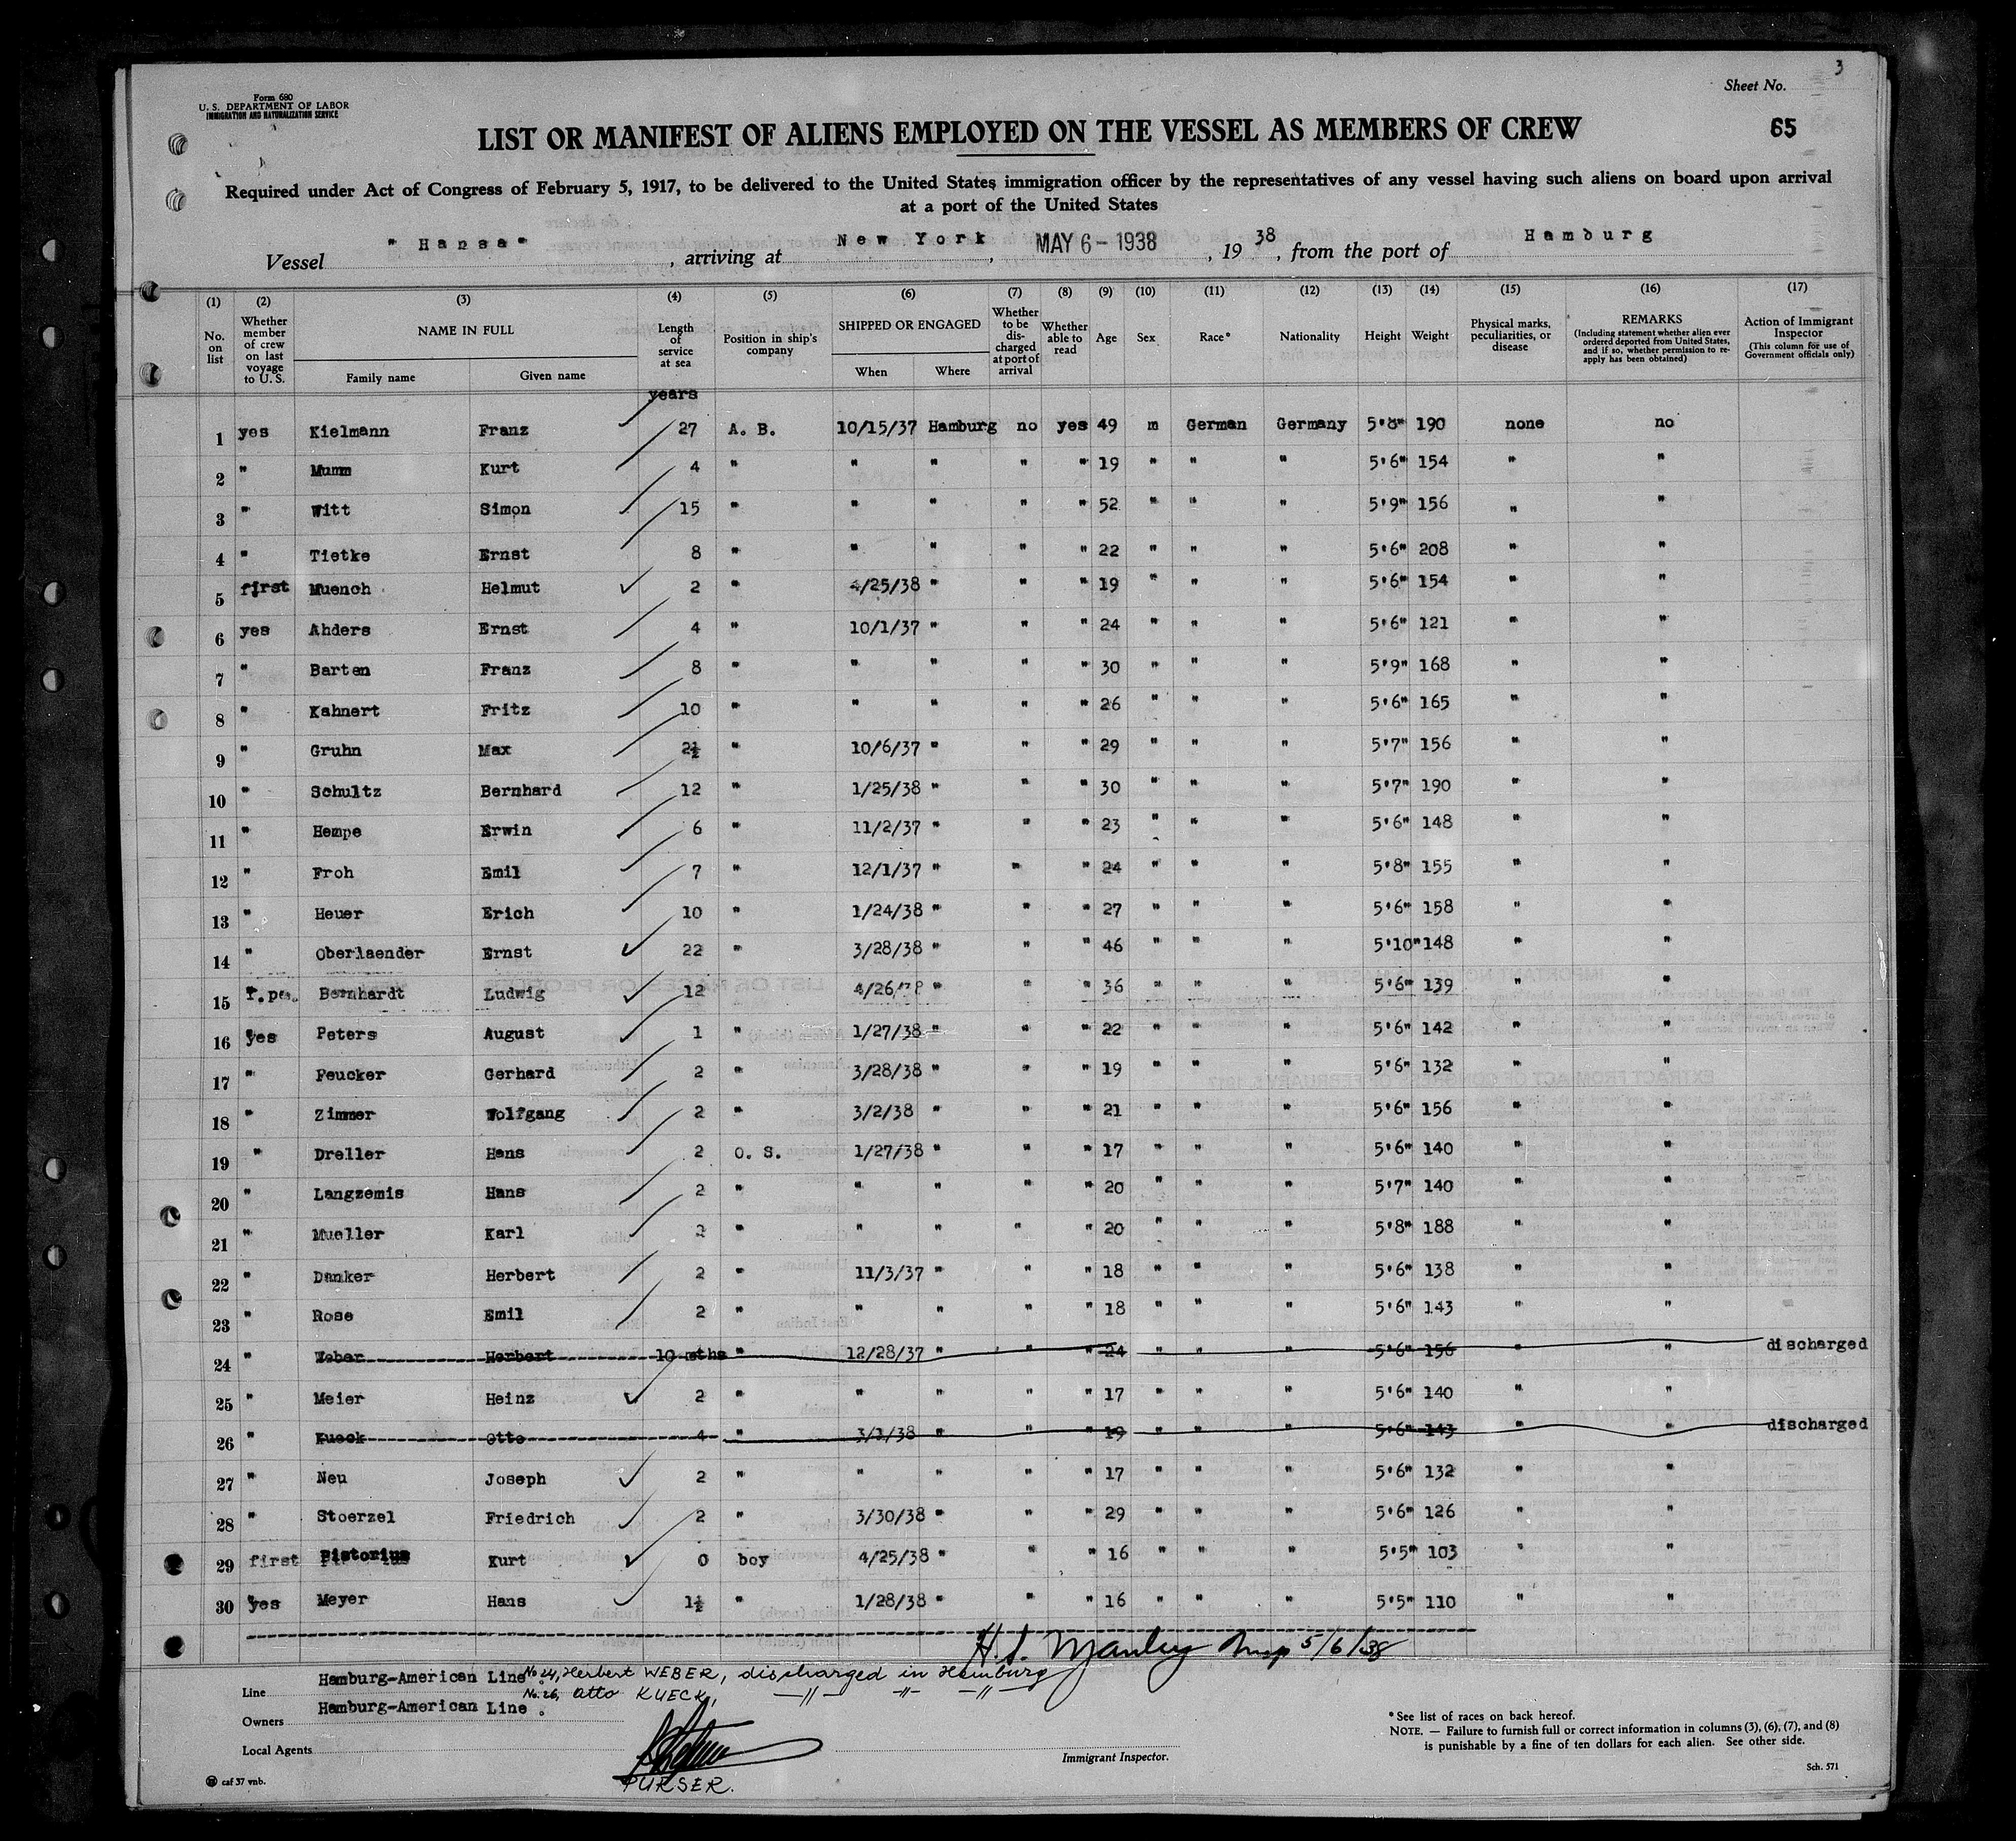 3
Sheet No.
Form 680
U. S. DEPARTMENT OF LABOR
IMMIGRATION AND NATURALIZATION SERVICE
LIST OR MANIFEST OF ALIENS EMPLOYED ON THE VESSEL AS MEMBERS OF CREW
65
Required under Act of Congress of February 5, 1917, to be delivered to the United States immigration officer by the representatives of any vessel having such aliens on board upon arrival
at a port of the United States
Vessel "Hansa", arriving at New York, MAY 6 - 1938, 1938, from the port of Hamburg
(1) (2) (3) (4) (5) (6) (7) (8) (9) (10) (11) (12) (13) (14) (15) (16) (17)
No. on list
Whether member of crew on last voyage to U. S.
NAME IN FULL
Family name Given name
Length of service at sea
Position in ship's company
SHIPPED OR ENGAGED
When Where
Whether to be discharged at port of arrival
Whether able to read
Age
Sex
Race*
Nationality
Height
Weight
Physical marks, peculiarities, or disease
REMARKS
(Including statement whether alien ever ordered deported from United States, and if so, whether permission to reapply has been obtained)
Action of Immigrant Inspector
(This column for use of Government officials only)
years
1 yes Kielmann Franz 27 A. B. 10/15/37 Hamburg no yes 49 m German Germany 5'8" 190 none no
2 " Mumm Kurt 4 " " " " " 19 " " " 5'6" 154 " "
3 " Witt Simon 15 " " " " " 52 " " " 5'9" 156 " "
4 " Tietke Ernst 8 " " " " " 22 " " " 5'6" 208 " "
5 first Muench Helmut 2 " 4/25/38 " " " 19 " " " 5'6" 154 " "
6 yes Ahders Ernst 4 " 10/1/37 " " " 24 " " " 5'6" 121 " "
7 " Barten Franz 8 " " " " " 30 " " " 5'9" 168 " "
8 " Kahnert Fritz 10 " " " " " 26 " " " 5'6" 165 " "
9 " Gruhn Max 2½ " 10/6/37 " " " 29 " " " 5'7" 156 " "
10 " Schultz Bernhard 12 " 1/25/38 " " " 30 " " " 5'7" 190 " "
11 " Hempe Erwin 6 " 11/2/37 " " " 23 " " " 5'6" 148 " "
12 " Froh Emil 7 " 12/1/37 " " " 24 " " " 5'8" 155 " "
13 " Heuer Erich 10 " 1/24/38 " " " 27 " " " 5'6" 158 " "
14 " Oberlaender Ernst 22 " 3/28/38 " " " 46 " " " 5'10" 148 " "
15 Bernhardt Ludwig 12 " 4/26/38 " " " 36 " " " 5'6" 139 " "
16 yes Peters August 1 " 1/27/38 " " " 22 " " " 5'6" 142 " "
17 " Feucker Gerhard 2 " 3/28/38 " " " 19 " " " 5'6" 132 " "
18 " Zimmer Wolfgang 2 " 3/2/38 " " " 21 " " " 5'6" 156 " "
19 " Dreller Hans 2 O. S. 1/27/38 " " " 17 " " " 5'6" 140 " "
20 " Langzemis Hans 2 " " " " " 20 " " " 5'7" 140 " "
21 " Mueller Karl 2 " " " " " 20 " " " 5'8" 188 " "
22 " Danker Herbert 2 " 11/3/37 " " " 18 " " " 5'6" 138 " "
23 " Rose Emil 2 " " " " " 18 " " " 5'6" 143 " "
24 " Weber Herbert 10 mths " 12/28/37 " " " 24 " " " 5'6" 156 " " discharged
25 " Meier Heinz 2 " " " " " 17 " " " 5'6" 140 " "
26 " Kueck Otto 4 " 3/1/38 " " " 19 " " " 5'6" 143 " " discharged
27 " Neu Joseph 2 " " " " " 17 " " " 5'6" 132 " "
28 " Stoerzel Friedrich 2 " 3/30/38 " " " 29 " " " 5'6" 126 " "
29 first Pistorius Kurt 0 boy 4/25/38 " " " 16 " " " 5'5" 103 " "
30 yes Meyer Hans 1½ " 1/28/38 " " " 16 " " " 5'5" 110 " "
H. S. Manley Insp 5/6/38
Line Hamburg-American Line
No 24, Herbert WEBER, discharged in Hamburg
No. 26, Otto KUECK, -"- -"- -"-
Owners Hamburg-American Line.
Local Agents
PURSER.
Immigrant Inspector.
*See list of races on back hereof.
NOTE. — Failure to furnish full or correct information in columns (3), (6), (7), and (8)
is punishable by a fine of ten dollars for each alien. See other side.
caf 37 vnb.
Sch. 571